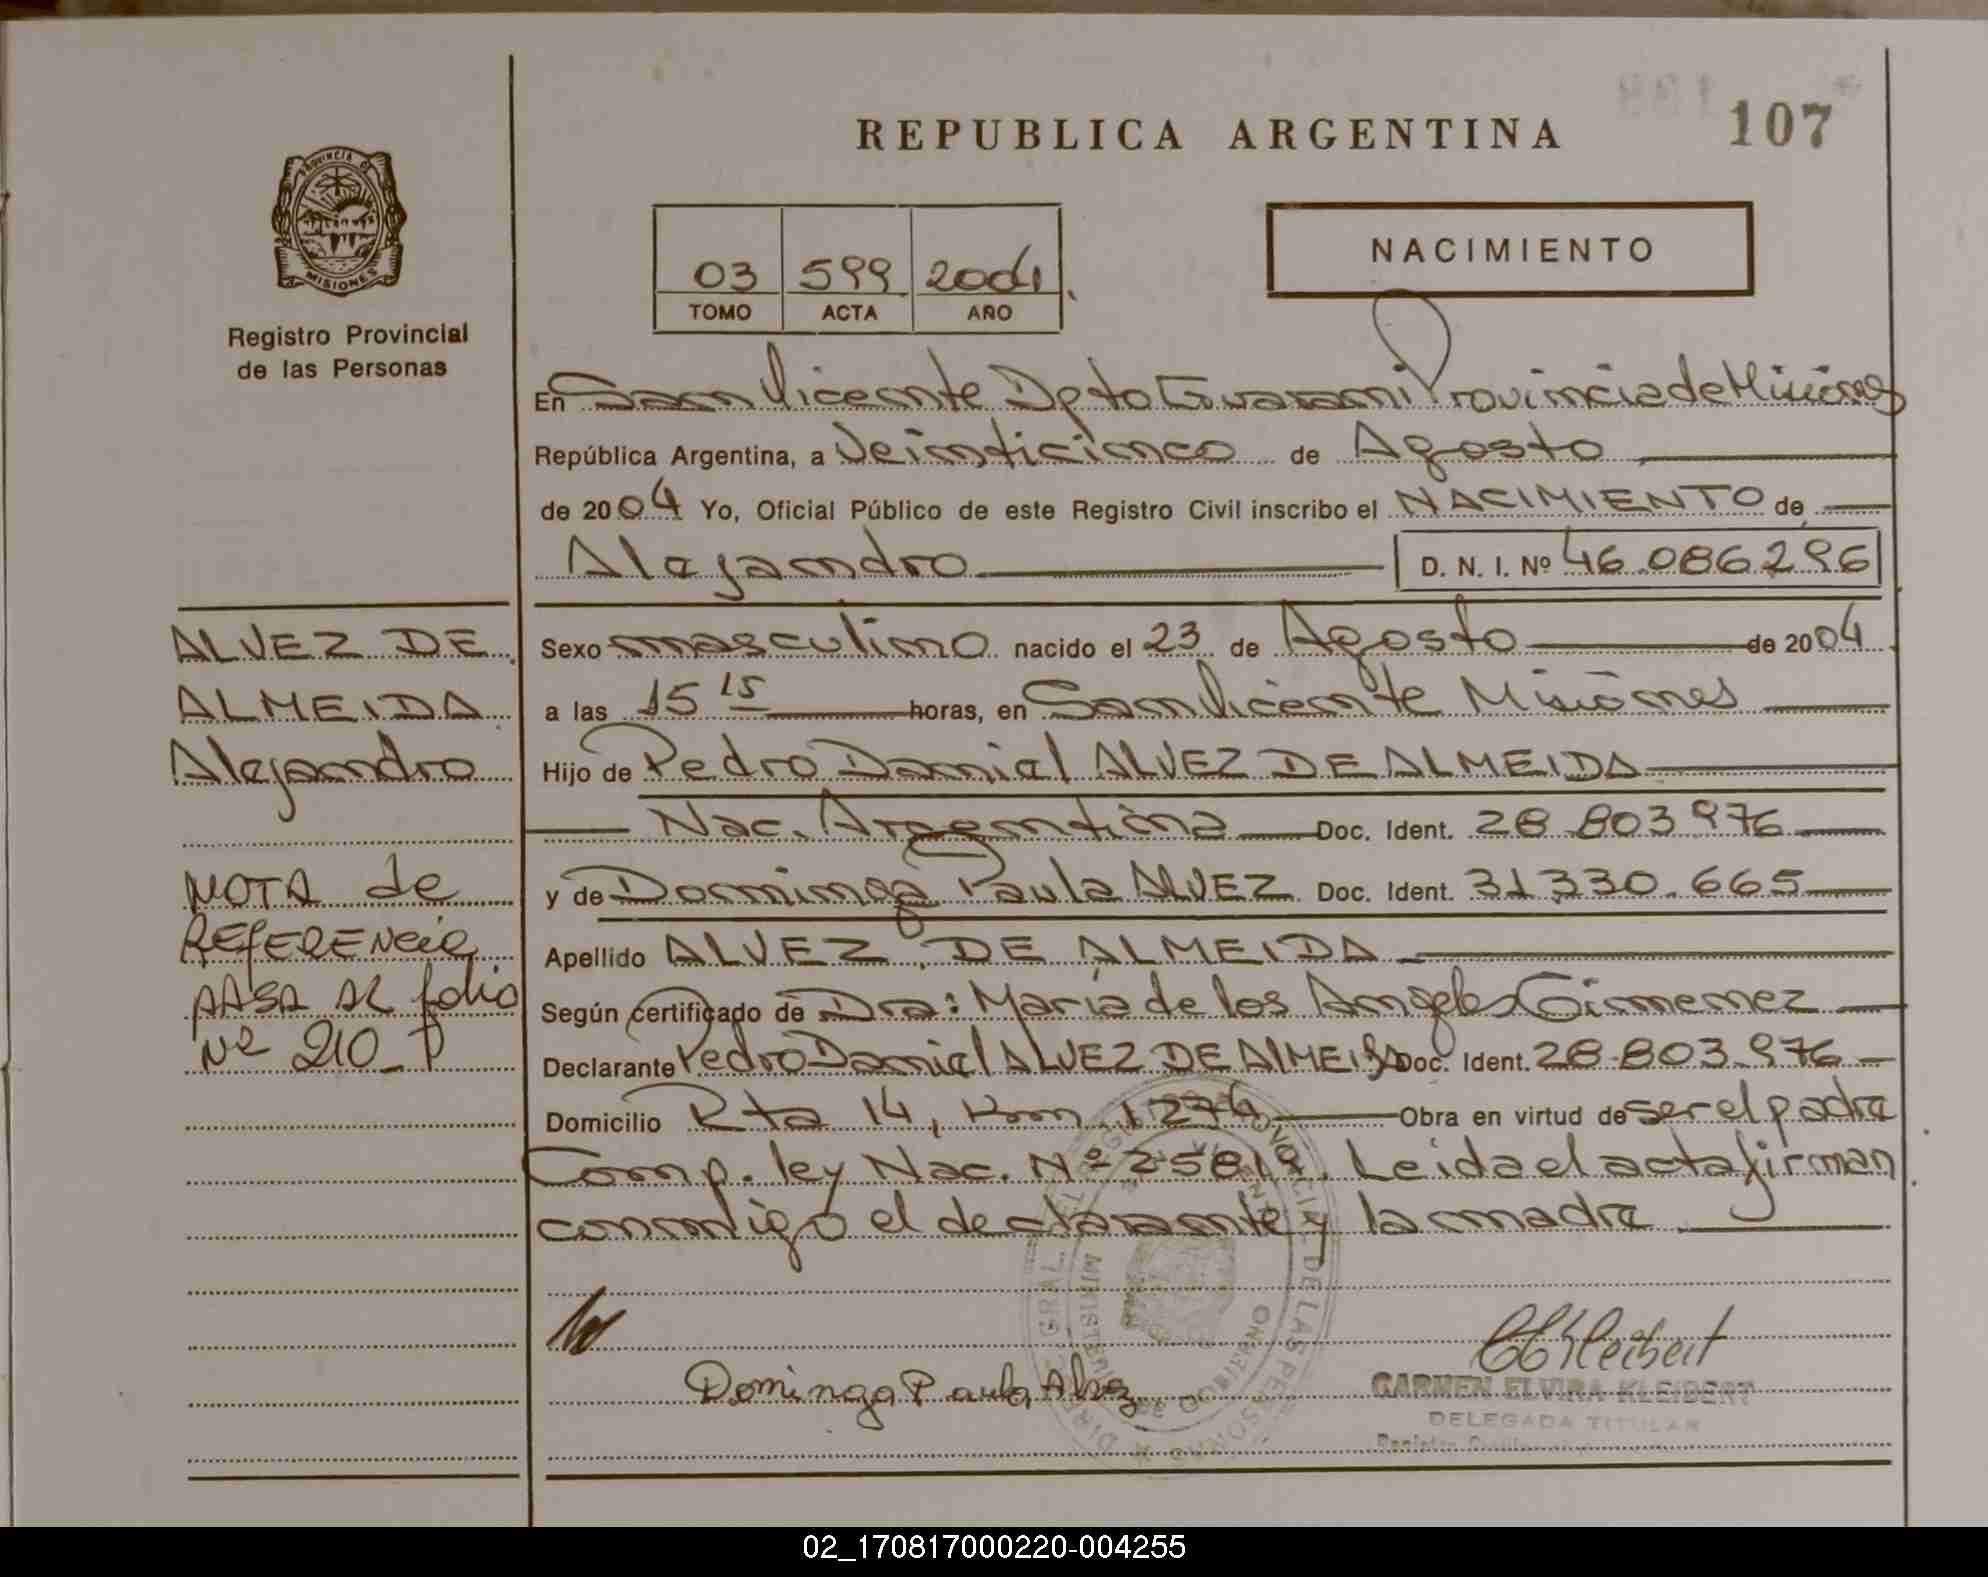 107
REPUBLICA ARGENTINA
PROVINCIA DE
MISIONES
Registro Provincial
de las Personas
NACIMIENTO
03 599 2004
TOMO ACTA AÑO
En San Vicente Dpto Guarani Provincia de Misiones
República Argentina, a Veinticinco de Agosto
de 2004 Yo, Oficial Público de este Registro Civil inscribo el NACIMIENTO de
Alejandro D. N. I. Nº 46.086.296
Sexo masculino nacido el 23 de Agosto de 2004
a las 15 15 horas, en San Vicente Misiones
Hijo de Pedro Daniel ALVEZ DE ALMEIDA
Nac. Argentina Doc. Ident. 28.803.976
y de Dominga Paula ALVEZ Doc. Ident. 31.330.665
Apellido ALVEZ DE ALMEIDA
Según certificado de Dra: Maria de los Angeles Gimenez
Declarante Pedro Daniel ALVEZ DE ALMEIDA Doc. Ident. 28.803.976
Domicilio Rta 14, Km 1274, Obra en virtud de ser el padre
Comp. ley Nac. Nº 25819. Leida el acta firman
conmigo el declarante y la madre
ALVEZ DE
ALMEIDA
Alejandro
NOTA de
REFERENCIA
PASA AL folio
Nº 210 P
Dominga Paula Alvez
CEKleibert
CARMEN ELVIRA KLEIBERT
DELEGADA TITULAR
02_170817000220-004255